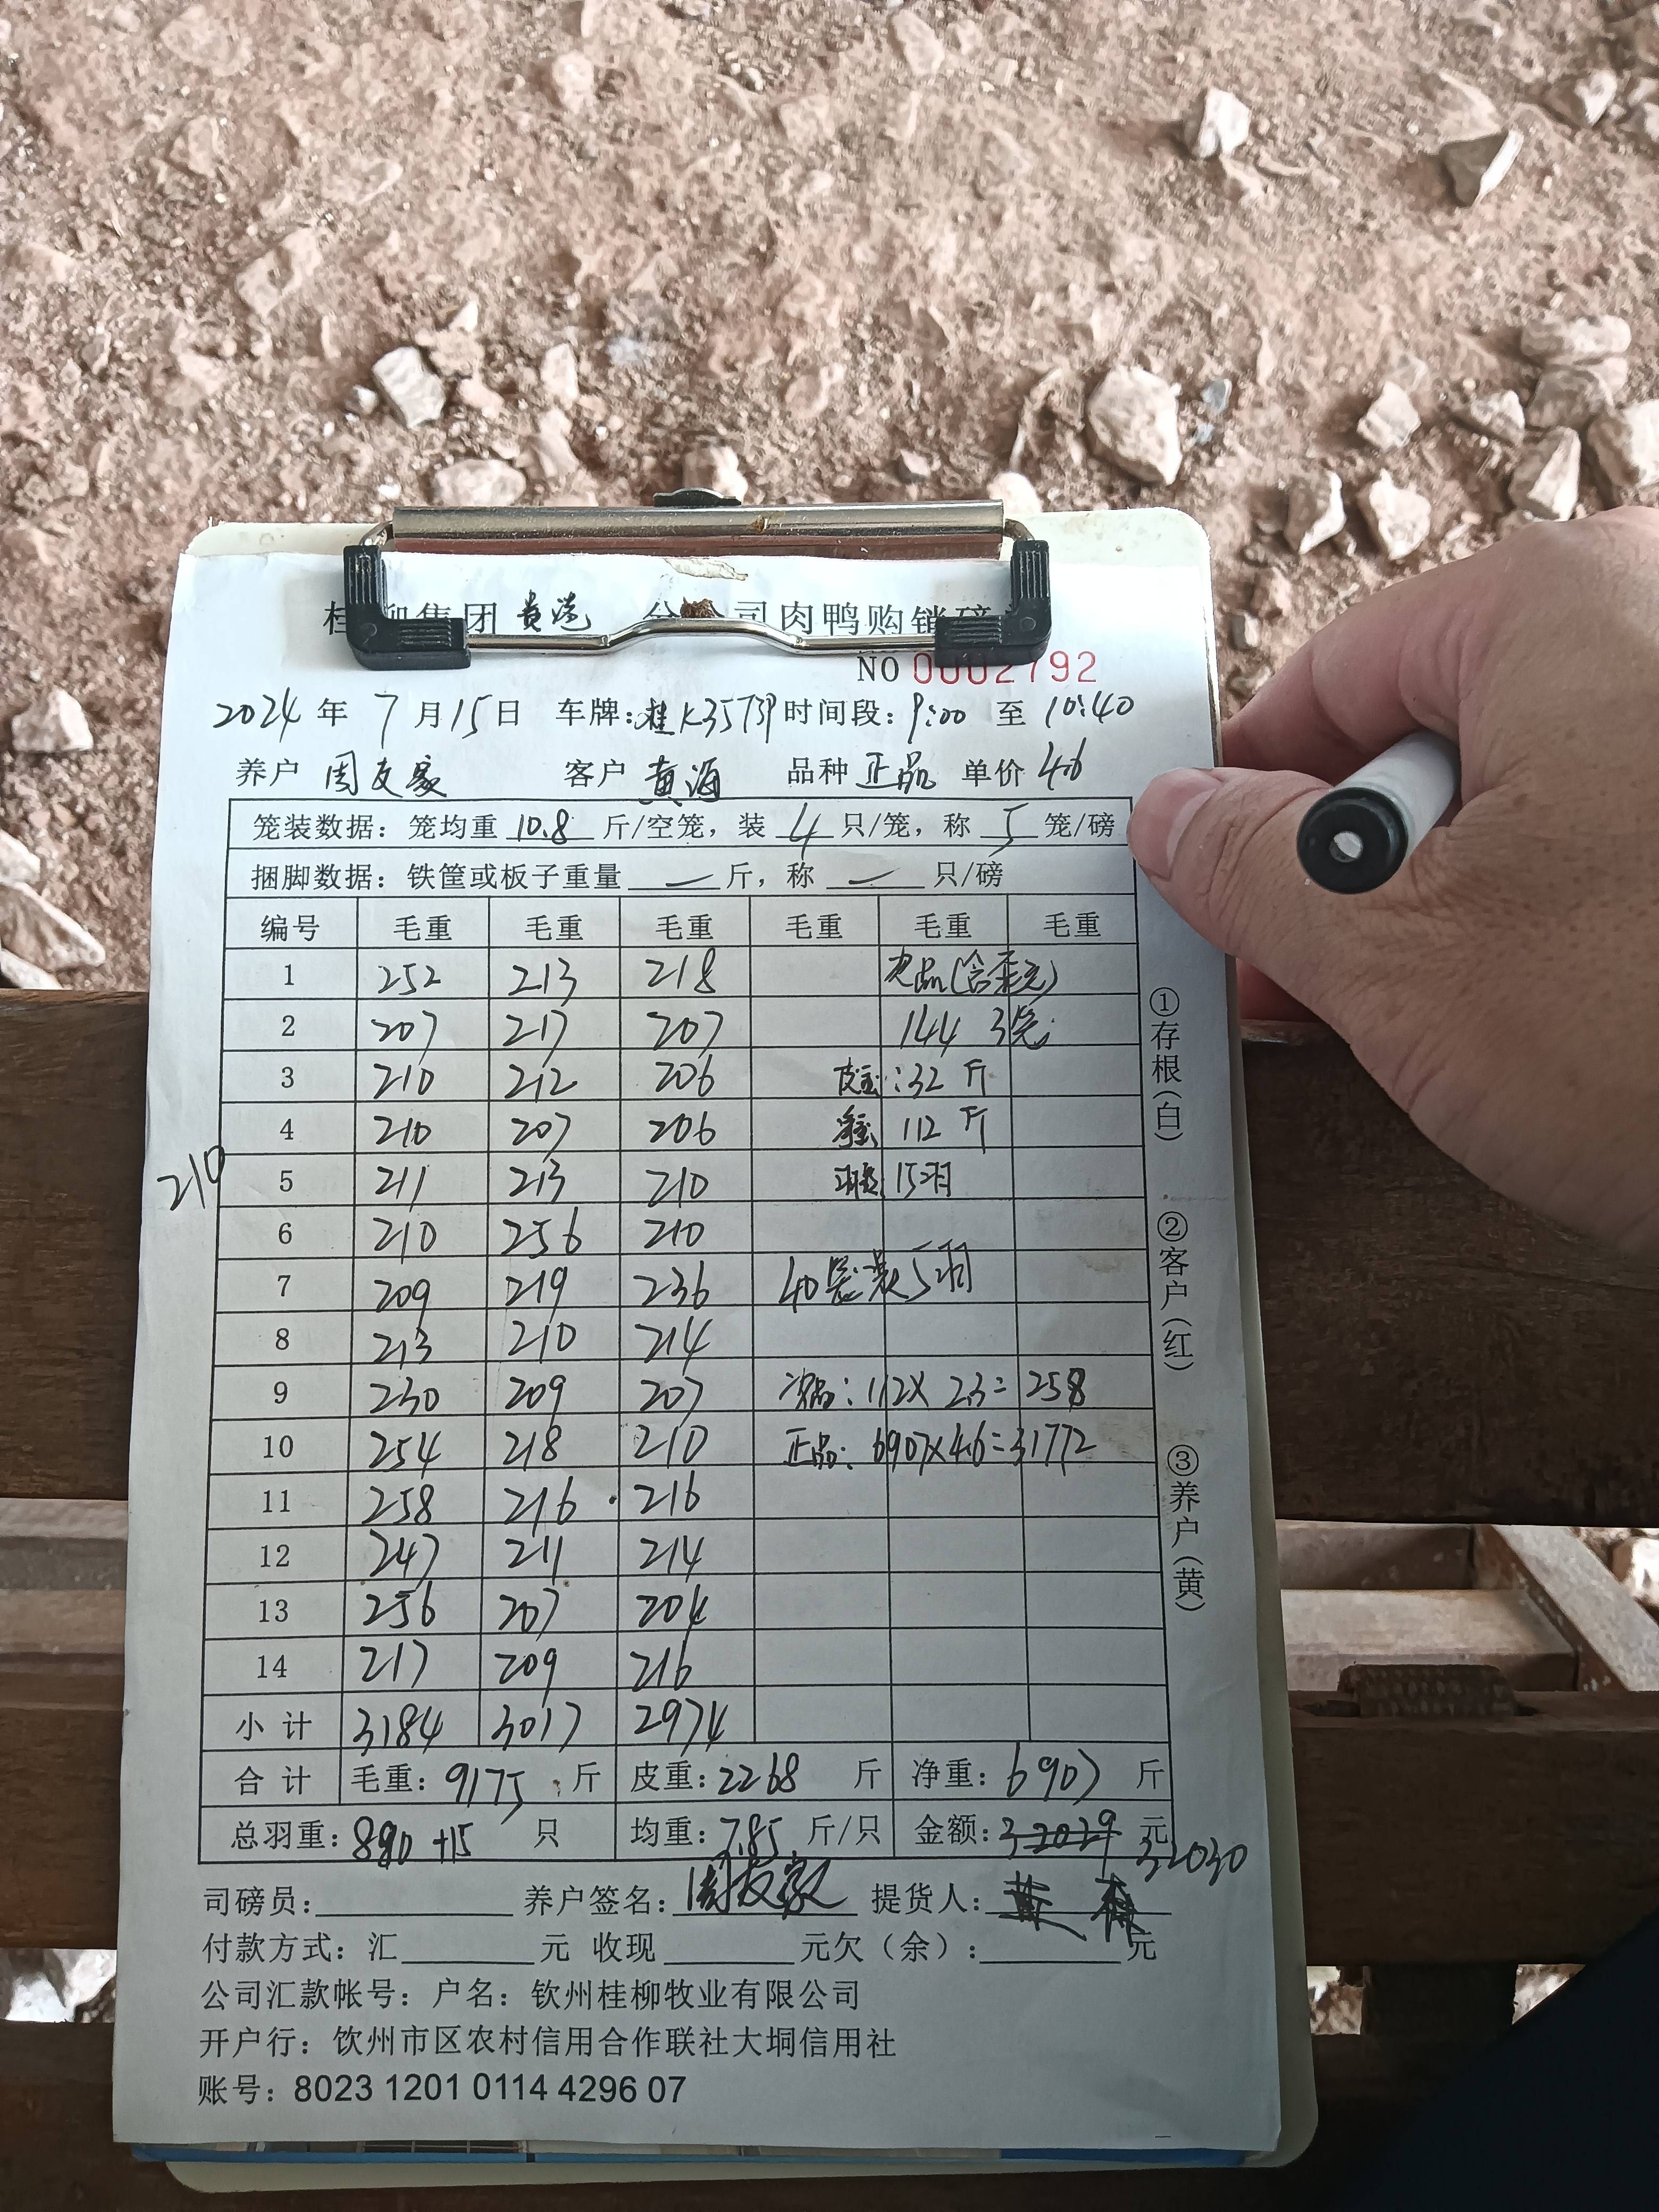 集团 贵港 分公司肉鸭购销磅
NO 0002792
2024 年 7 月 15 日 车牌: 桂K35T39 时间段: 9:00 至 10:40
养户 周友家 客户 黄海 品种 正品 单价 4.6
笼装数据: 笼均重 10.8 斤/空笼, 装 4 只/笼, 称 5 笼/磅
捆脚数据: 铁筐或板子重量 斤, 称 只/磅
编号 毛重 毛重 毛重 毛重 毛重 毛重
1 252 213 218
2 207 217 207 144 3笼
3 210 212 206 皮重: 32 斤
4 210 207 206 净重 112 斤
210 5 211 213 210 羽数 15羽
6 210 256 210
7 209 219 236 40笼装5羽
8 213 210 214
9 230 209 207 次品: 112×2.3=258
10 254 218 210 正品: 6907×4.6=31772
11 258 216 216
12 247 211 214
13 256 207 204
14 217 209 216
小计 3184 3017 2974
合计 毛重: 9175 斤 皮重: 2268 斤 净重: 6907 斤
总羽重: 880 +15 只 均重: 7.85 斤/只 金额: 32029 元 32030
司磅员: 养户签名: 周友家 提货人:
付款方式: 汇 元 收现 元欠(余): 元
公司汇款帐号: 户名: 钦州桂柳牧业有限公司
开户行: 饮州市区农村信用合作联社大垌信用社
账号: 8023 1201 0114 4296 07
①存根(白)
②客户(红)
③养户(黄)